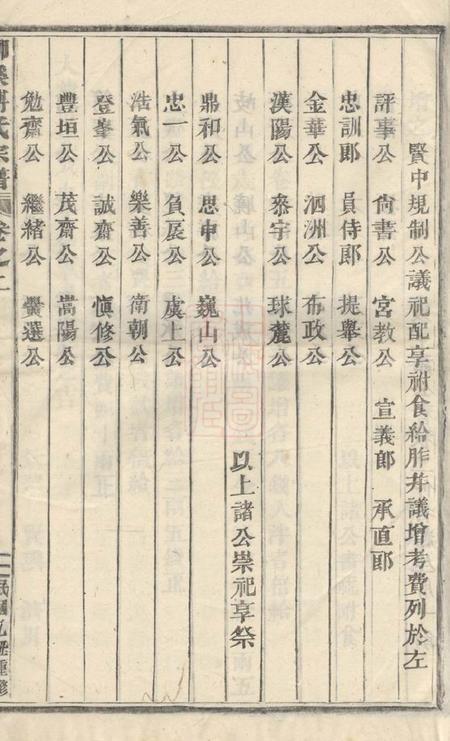 賢中規制公議祀配享祔食給胙并議增考費列於左
評事公 尚書公 宮教公 宣義郎 承直郎
忠訓郎 員侍郎 提舉公
金華公 泗洲公 布政公
漢陽公 泰宇公 球麓公
鼎和公 思中公 巍山公 以上諸公崇祀享祭
忠一公 負扆公 虞上公
浩氣公 樂善公 衛朝公
登峯公 誠齋公 慎修公
豐垣公 茂齋公 嵩陽公
勉齋公 繼緒公 龔選公
氏宗譜 卷之
民國
重修